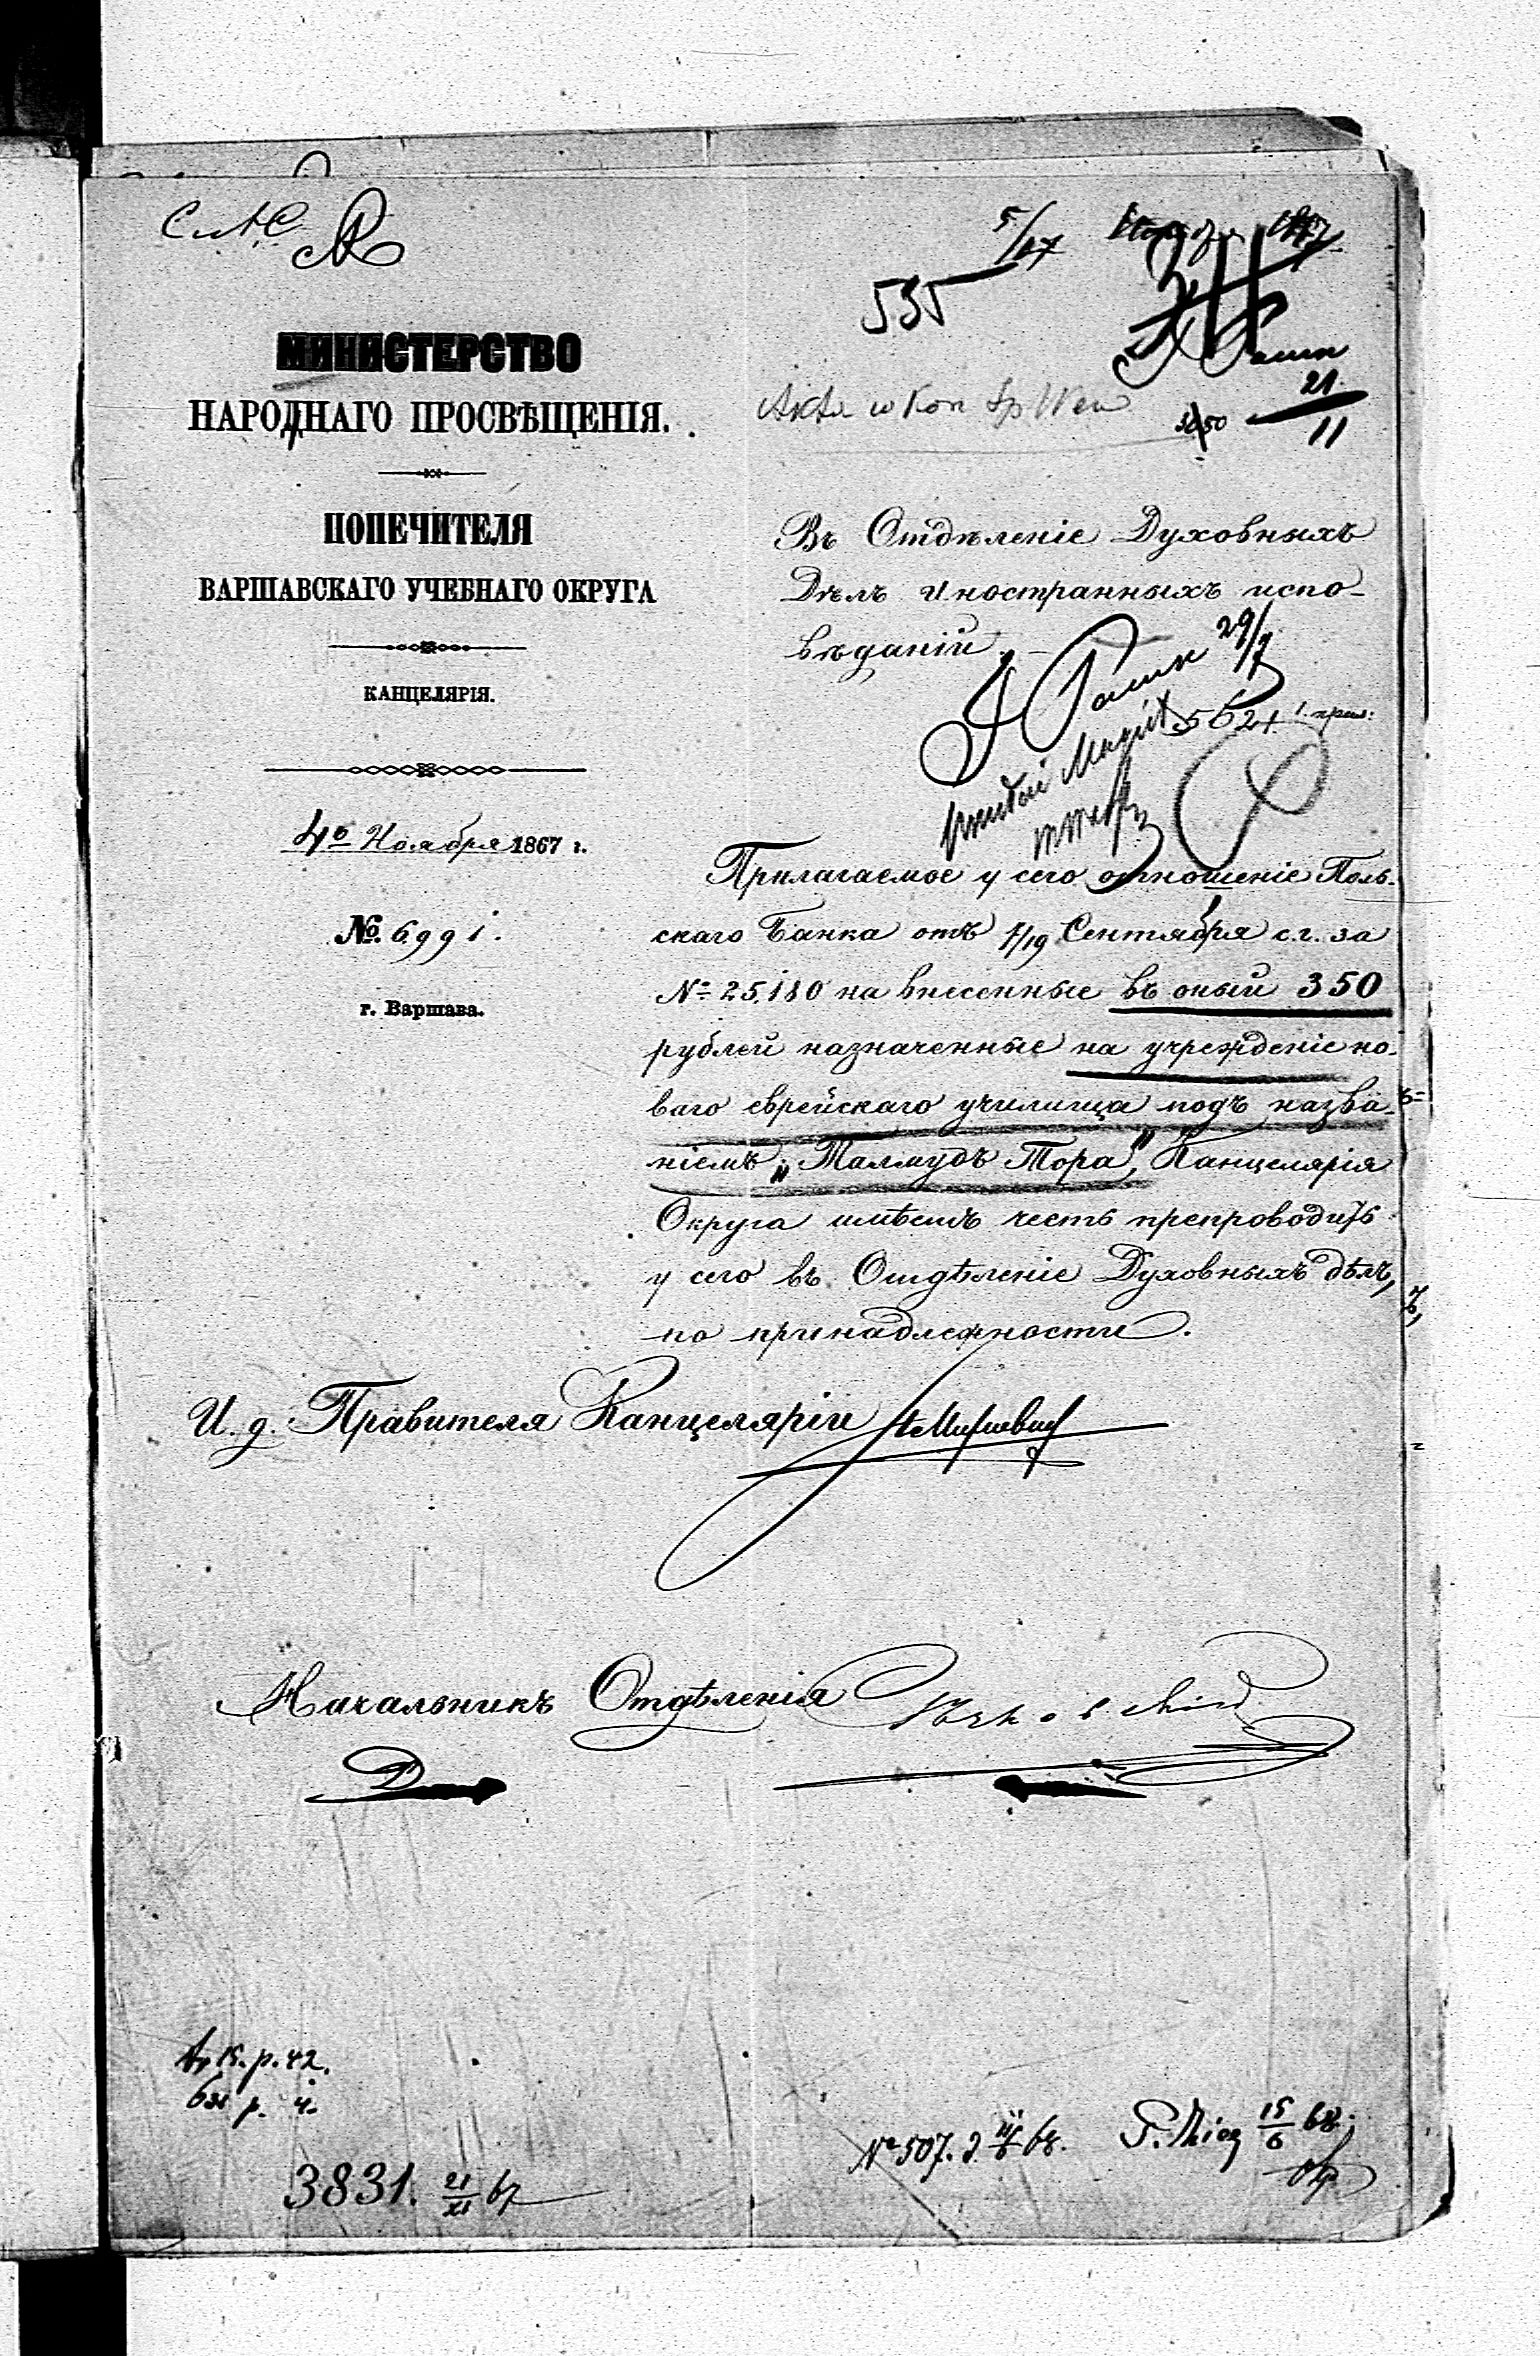 535
МИНИСТЕРСТВО
НАРОДНАГО ПРОСВѢЩЕНІЯ.
ПОПЕЧИТЕЛЯ
ВАРШАВСКАГО УЧЕБНАГО ОКРУГА
КАНЦЕЛЯРІЯ.
4го Ноября 1867 г.
№ 6991.
г. Варшава.
21
11
Въ Отдѣленіе Духовныхъ
Дѣлъ Иностранныхъ испо-
вѣданій.
5621
Прилагаемое у сего отношеніе Поль-
скаго Банка отъ 7/19 Сентября с.г. за
№ 25,180 на внесенные въ оный 350
рублей назначенные на учрежденіе но-
ваго еврейскаго училища подъ назва-
ніемъ „Талмудъ Тора", Канцелярія
Округа имѣетъ честь препроводить
у сего въ Отдѣленіе Духовныхъ дѣлъ,
по принадлежности.
И. д. Правителя Канцеляріи
Начальникъ Отдѣленія
р. 42.
3831. 21/XI 67
№ 507. 68.
15/6 68.